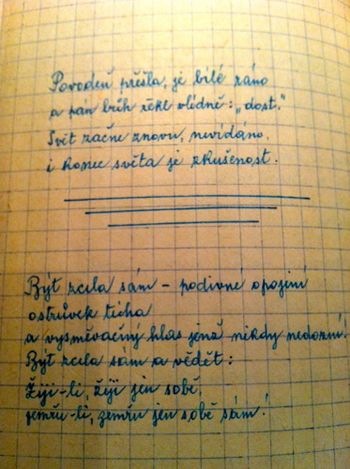 Povodeň přešla, je bílé ráno
a pan Bůh řekl vlídně: „dost."
Svět začne znovu, nevídáno,
i konec světa je zkušenost.
Být zcela sám – podivné opojení
ostrůvek ticha
a vysměvačný hlas jenž nikdy nedozní.
Být zcela sám a vědět:
Žiji-li, žiji jen sobě,
zemřu-li, zemřu jen sobě sám!